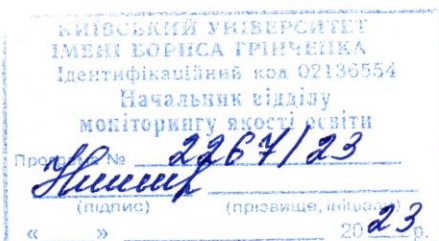 КИЇВСЬКИЙ УНІВЕРСИТЕТ
ІМЕНІ БОРИСА ГРІНЧЕНКА
Ідентифікаційний код 02136554
Начальник відділу
моніторингу якості освіти
Програма № 2267/23
(підпис) (прізвище, ініціали)
« » 2023р.